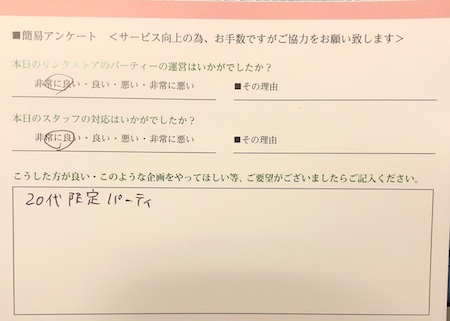 ■簡易アンケート ＜サービス向上の為、お手数ですがご協力をお願い致します＞
本日のリンクストアのパーティーの運営はいかがでしたか？
非常に良い・良い・悪い・非常に悪い ■その理由
本日のスタッフの対応はいかがでしたか？
非常に良い・良い・悪い・非常に悪い ■その理由
こうした方が良い・このような企画をやってほしい等、ご要望がございましたらご記入ください。
20代限定パーティ